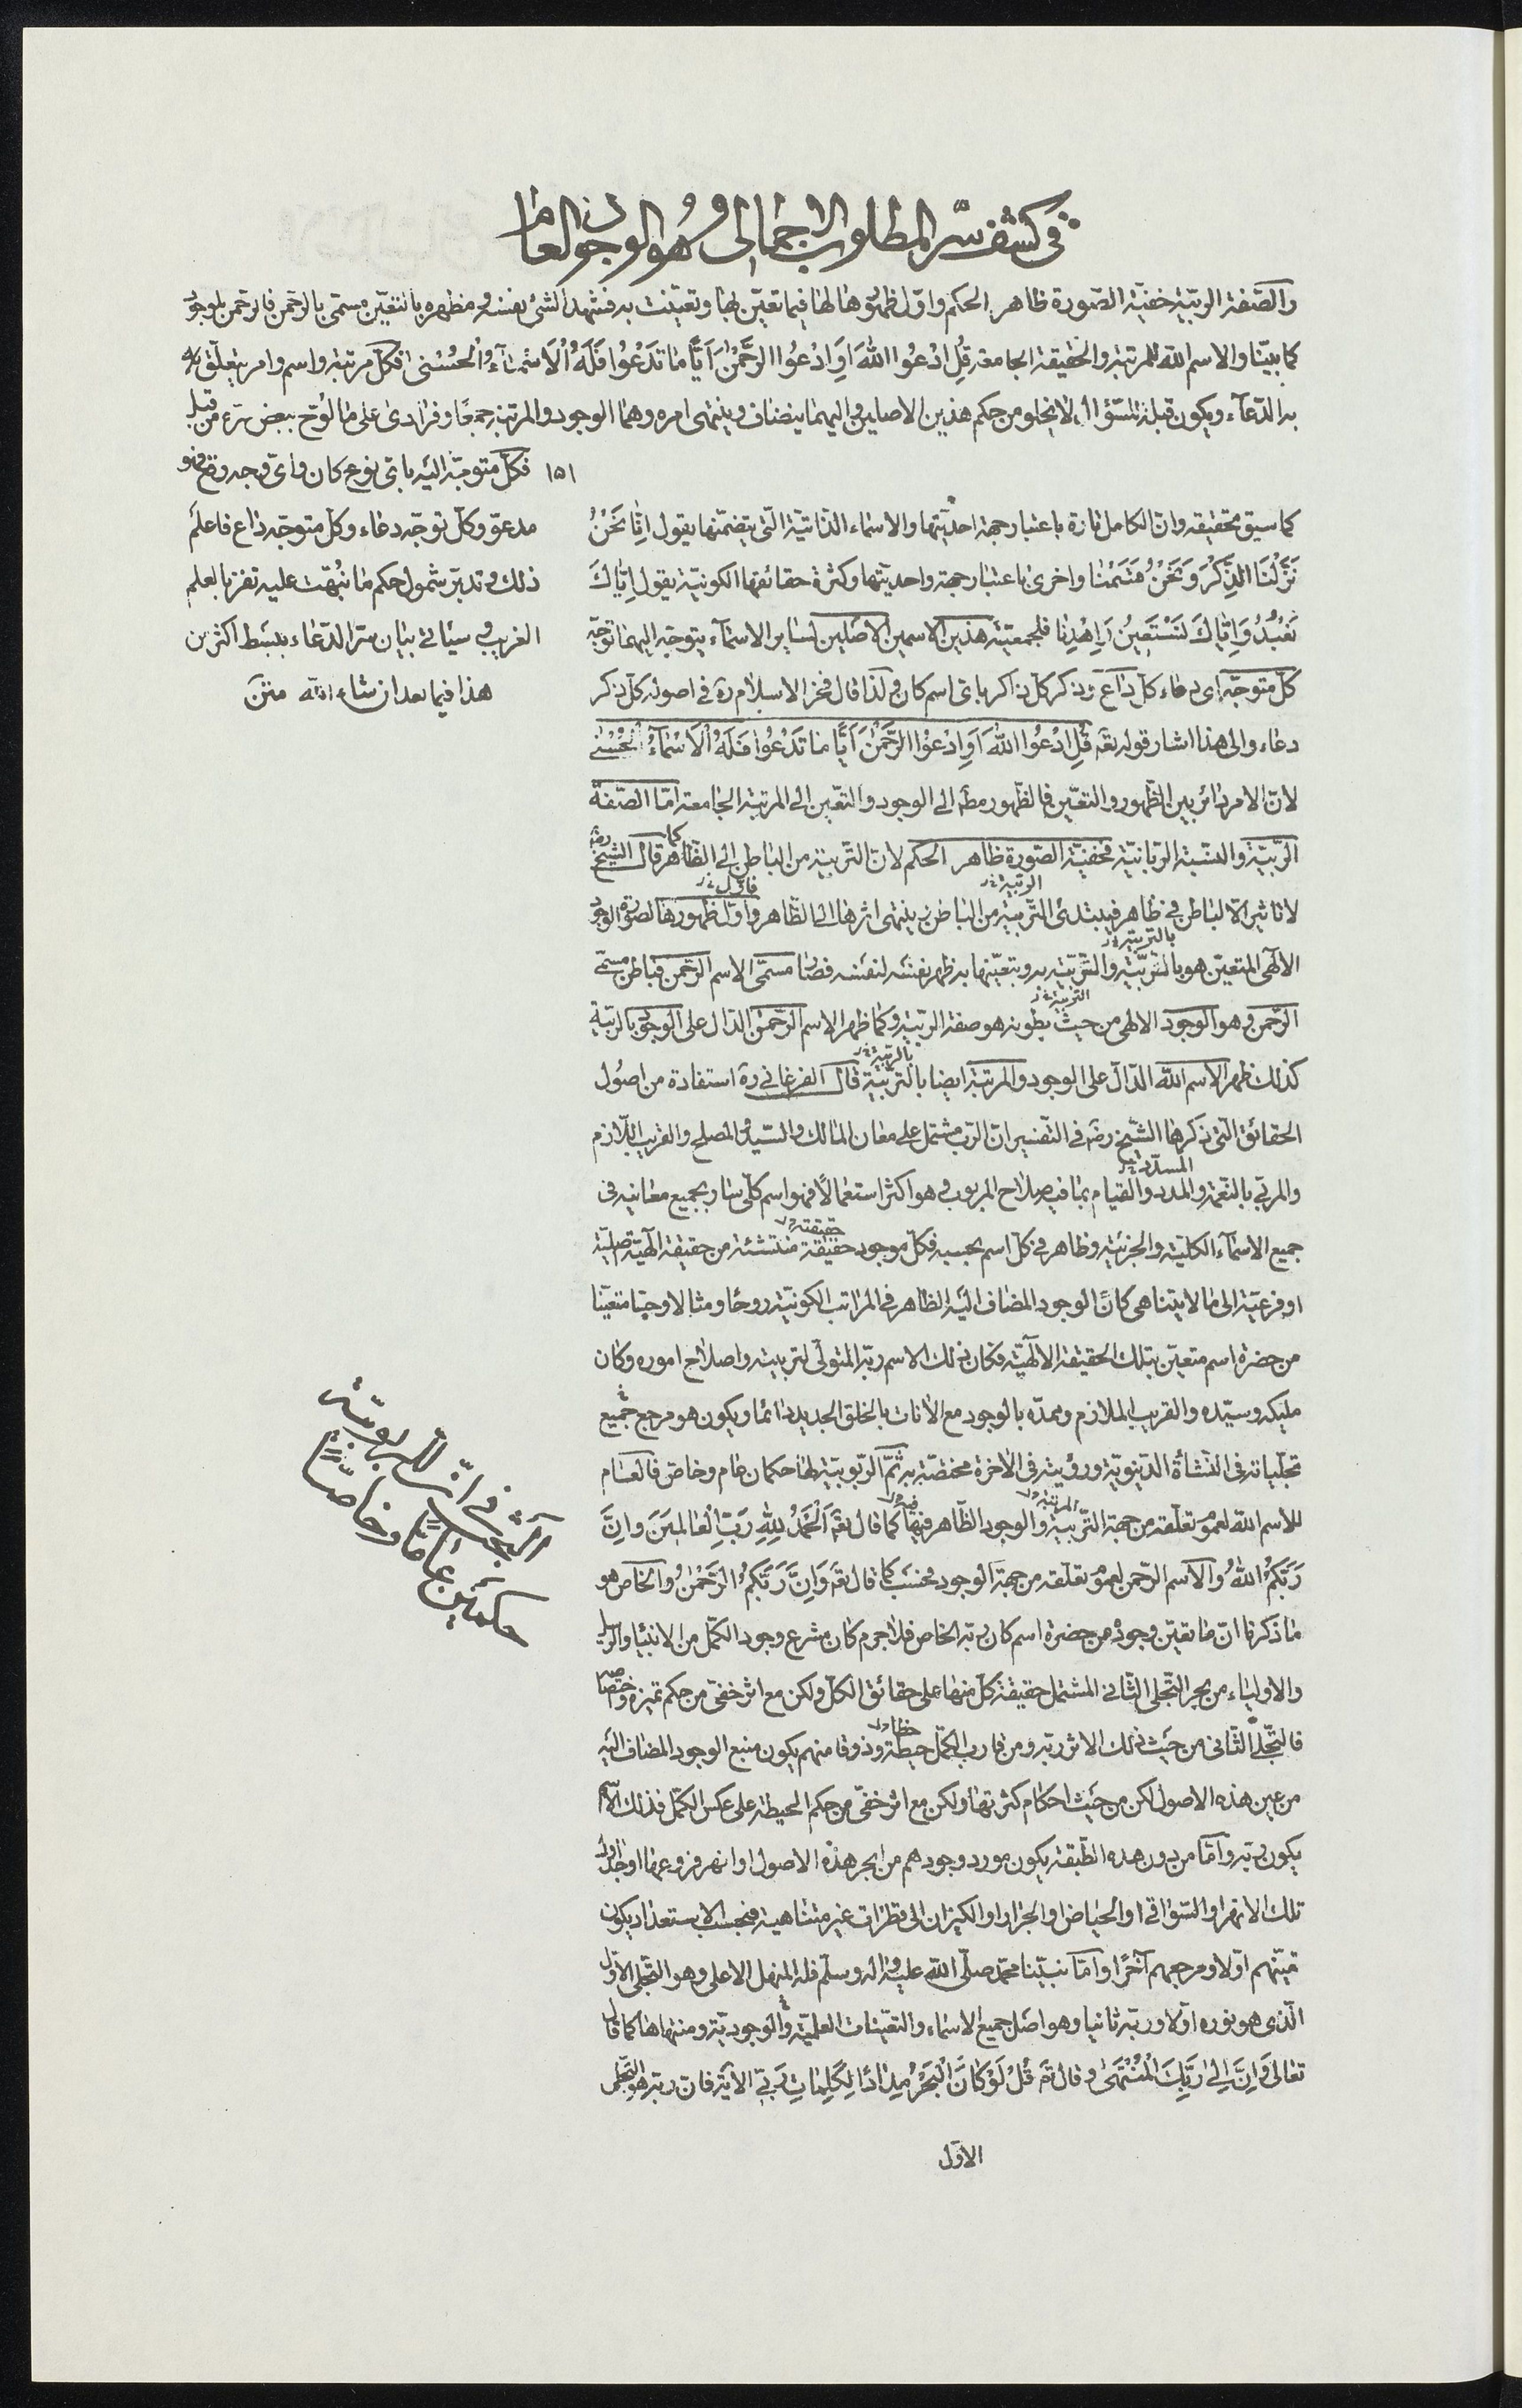 في كشف سرّ المطلوب الاجمالى وهو الوجود العام
والصّفة الربّية خفيّة الصّورة ظاهر الحكم واوّل ظهورها لها فيما تعيّن بها وتعيّنت به فشهد الشئ نفسه في مظهره بالتعيّن مسمّى بالرّحمن فالرّحمن للوجود
كما بيّنا والاسم الله للمرتبة والحقيقة الجامعة قُلِ ادْعُوا اللهَ اَوِ ادْعُوا الرَّحْمٰنَ اَيًّا مٰا تَدْعُوا فَلَهُ الْاَسْمٰاءُ الْحُسْنٰى فكلّ مرتبة واسم وامر يتعلّق
به الدّعاء ويكون قبلة للسّؤال لا يخلو من حكم هذين الاصلين واليهما ينضاف وينتهى امره وهما الوجود والمرتبة جمعًا وفرادى على ما لوّح ببعض سرّه من قبل
١٥١ فكلّ متوجّه اليه باىّ نوع كان واىّ وجه وقع فهو
مدعوّ وكلّ توجّه دعاء وكلّ متوجّه داع فاعلم
ذلك وتدبّر شمول حكم ما نبّهت عليه تفز بالعلم
الغريب وسيأتى بيان سرّ الدّعاء ببسط اكثر من
هذا فيما بعد ان شاء الله متن
كما سبق تحقيقه وانّ الكامل تارة باعتبار جهة احديّتها والاسماء الذّاتيّة الّتى يتضمّنها يقول اِنّٰا نَحْنُ
نَزَّلْنَا الذِّكْرَ وَنَحْنُ قَسَمْنٰا واخرى باعتبار جهة واحديّتها وكثرة حقائقها الكونيّة يقول اِيّٰاكَ
نَعْبُدُ وَاِيّٰاكَ نَسْتَعينُ وَاِهْدِنٰا فلجمعيّة هذين الاسمين الاصلين لساير الاسماء يتوجّه اليهما توجّه
كلّ متوجّه اى دعاء كلّ داع وذكر كلّ ذاكر باىّ اسم كان ولذا قال فخر الاسلام ره فى اصوله كلّ ذكر
دعاء والى هذا اشار قوله تعه قُلِ ادْعُوا اللهَ اَوِ ادْعُوا الرَّحْمٰنَ اَيًّا مٰا تَدْعُوا فَلَهُ الْاَسْمٰاءُ الْحُسْنٰى
لانّ الامر دائر بين الظّهور والتعيّن فالظّهور الى الوجود والتعّين الى المرتبة الجامعة امّا الصّفة
الربّيّة والنسبة الربّانيّة فخفيّة الصّورة ظاهر الحكم لانّ التّربية من الباطن الى الظّاهر كما قال الشيخ رضه
لا تاثير الّا لباطن فى ظاهر فيبتدئ التّربية الربّية من الباطن وينتهى اثرها الى الظّاهر واوّل فاوّل ظهورها لصورة الوجود
الالٓهى المتعيّن هو بالتربّية بالتربية والتّربّية به وبتعيّنها به ظهر نفسه لنفسه فصار مسمّى الاسم الرّحمن فباطن مسمّى
الرّحمن وهو الوجود الالهى من حيث بطونه هو صفة الربّية التربية وكما ظهر الاسم الرّحمن الدّال على الوجود بالربّية
كذلك ظهر الاسم الله الدّالّ على الوجود والمرتبة ايضا بالتربّية بالربّية قال الفرغانى ره استفادة من اصول
الحقائق الّتى ذكرها الشّيخ رضه فى التّفسير انّ الربّ مشتمل على معان المالك والسّيّد والمصلح والقريب اللّازم
والمربّى بالنّعمة والمدد والقيام بما فيه صلاح المربوب وهو اكثر استعمالًا فهو اسم كلّى سار بجميع معانيه فى
جميع الاسماء الكلّيّة والجزئيّة وظاهر فى كلّ اسم بحسبه فكلّ موجود حقيقة حقيقته منتشئة من حقيقة الٓهيّة اصليّة
او فرعيّة الى ما لا يتناهى كان الوجود المضاف اليه الظاهر فى المراتب الكونيّة روحًا ومثالا وحسّا متعيّنا
من حضرة اسم متعيّن بتلك الحقيقة الالٓهيّة فكان ذلك الاسم ربّه المتولّى لتربيته واصلاح اموره وكان
مليكه وسيّده والقريب الملازم وممدّه بالوجود مع الانات بالخلق الجديد دائما ويكون هو مرجع جميع
تجلّياته فى النّشأة الدّنيويّة ورؤيته فى الاخرة مختصّة به ثمّ الرّبوبيّة لها حكمان عام وخاصّ فالعام
للاسم الله لعموم تعلّقه من جهة التّربية المرتبة والوجود الظّاهر فيها كما قال تعه اَلْحَمْدُ لِلّٰهِ رَبِّ الْعٰالَمينَ وانَّ
رَبَّكُمُ اللهُ والاسم الرّحمن لعموم تعلّقه من جهة الوجود فحسب كما قال تعه وَاِنَّ رَبَّكُمُ الرَّحْمٰنُ والخاصّ هو
ما ذكرنا انّ ما تعيّن وجوده من حضرة اسم كان ربّه الخاص فلاجرم كان مشرع وجود الكمّل من الانبياء والرّسل
والاولياء من بحر التّجلّى الثّانى المشتمل حقيقة كلّ منها على حقائق الكلّ ولكن مع اثر خفىّ من حكم تميّزه
فالتّجلّى الثّانى من حيث ذلك الاثر ربّه ومن قارب الكمّل حيطة وذوقا منهم يكون منبع الوجود المضاف اليه
من عين هذه الاصول لكن من حيث احكام كثرتها ولكن مع اثر خفىّ من حكم الحيطة على عكس الكمّل فذلك الاسم
يكون ربّه وامّا من دون هذه الطّبقة يكون مورد وجودهم من ابحر هذه الاصول او انهر فروعها او جداول
تلك الانهر او السّواقى او الحياض او الجرار او الكيزان الى قطرات غير متناهية فبحسب الاستعداد يكون
اوّلا ومرجعهم آخرًا وامّا نبيّنا محمّد صلّى الله عليه واله وسلّم فله المنهل الاعلى وهو التجلّى الاوّل
الّذى هو نوره اوّلا وربّه ثانيا وهو اصل جميع الاسماء والتعيّنات العلميّة والوجوديّة ومنتهاها كما قال
تعالى وَاَنَّ اِلىٰ رَبِّكَ الْمُنْتَهٰى وقال تع قُلْ لَوْ كٰانَ الْبَحْرُ مِدٰادًا لِكَلِمٰاتِ رَبّى الآية فانّ ربّه هو التّجلّى
الاوّل
البحث فى انّ للرّبوبيّة
حكمين عامّا وخاصّا